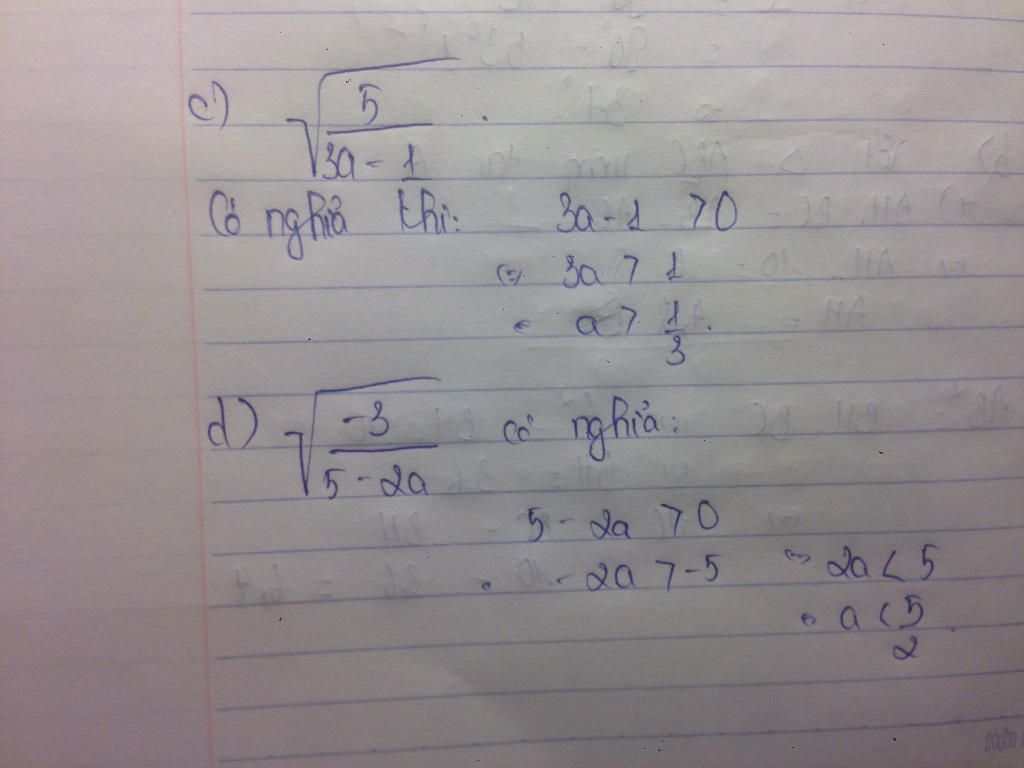 c) √(5/(3a - 1)) .
Có nghĩa khi: 3a - 1 > 0
⇔ 3a > 1
⇔ a > 1/3 .
d) √(-3/(5 - 2a)) có nghĩa:
5 - 2a > 0
⇔ - 2a > -5 ⇔ 2a < 5
⇔ a < 5/2 .